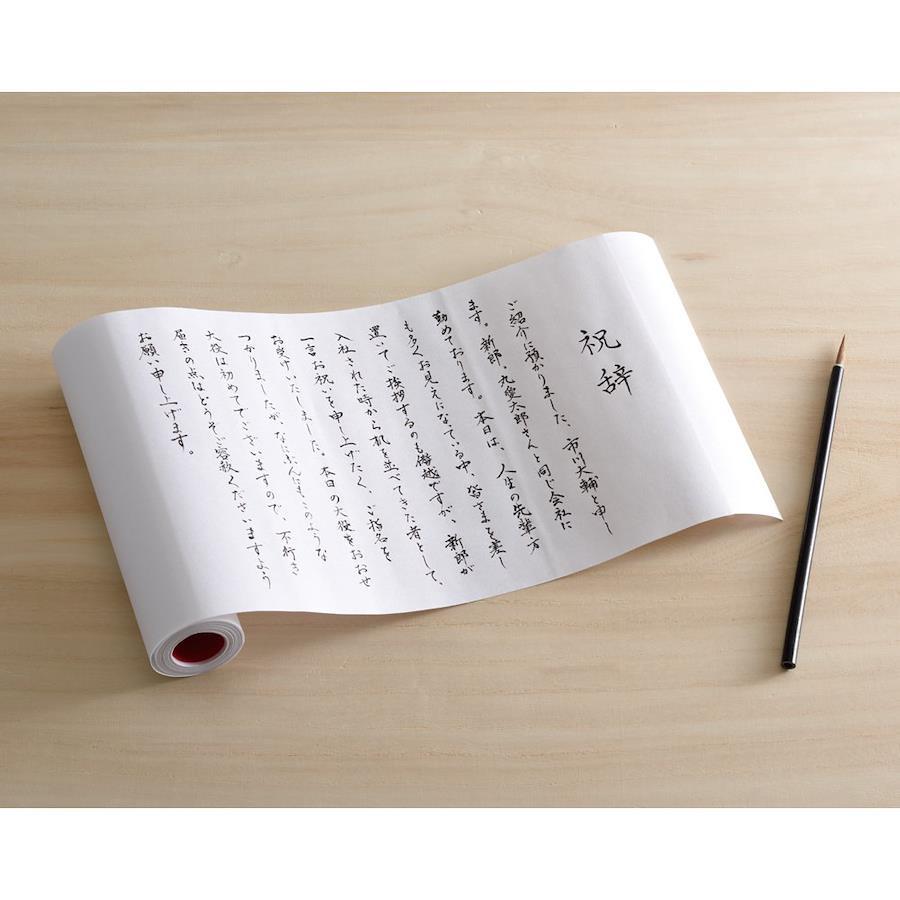 祝辞
ご紹介に預かりました、市川大輔と申し
ます。新郎・九愛太郎さんと同じ会社に
勤めております。本日は、人生の先輩方
も多くお見えになっている中、皆さまを差し
置いてご挨拶するのも僭越ですが、新郎が
入社された時から机を並べてきた者として、
一言お祝いを申し上げたく、ご指名を
お受けいたしました。本日の大役をおおせ
つかりましたが、なにぶんにもこのような
大役は初めてでございますので、不行き
届きの点はどうぞご容赦くださいますよう
お願い申し上げます。